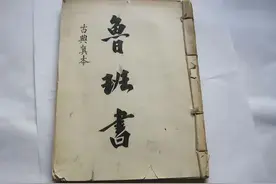 古典真本
魯班書